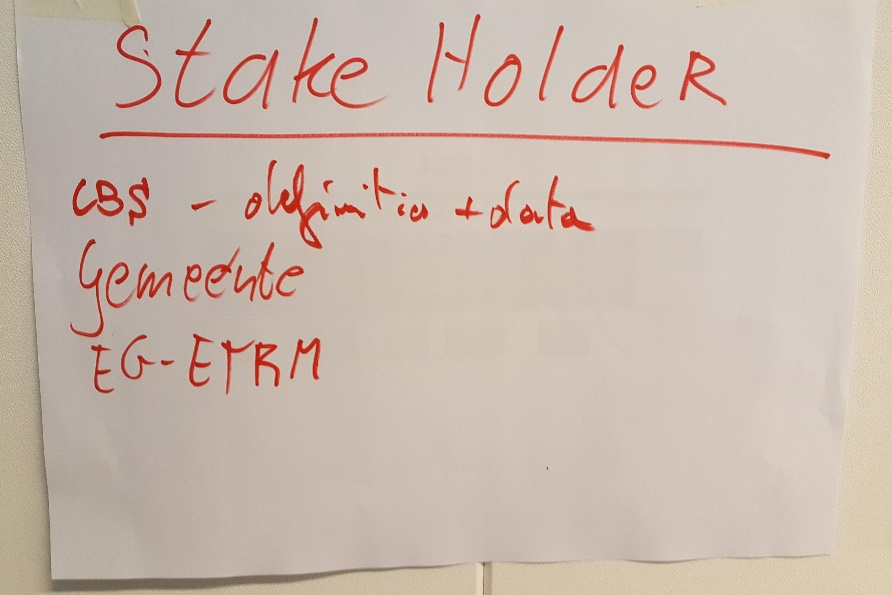 Stake Holder
CBS - definities + data
Gemeente
EG-ETRM